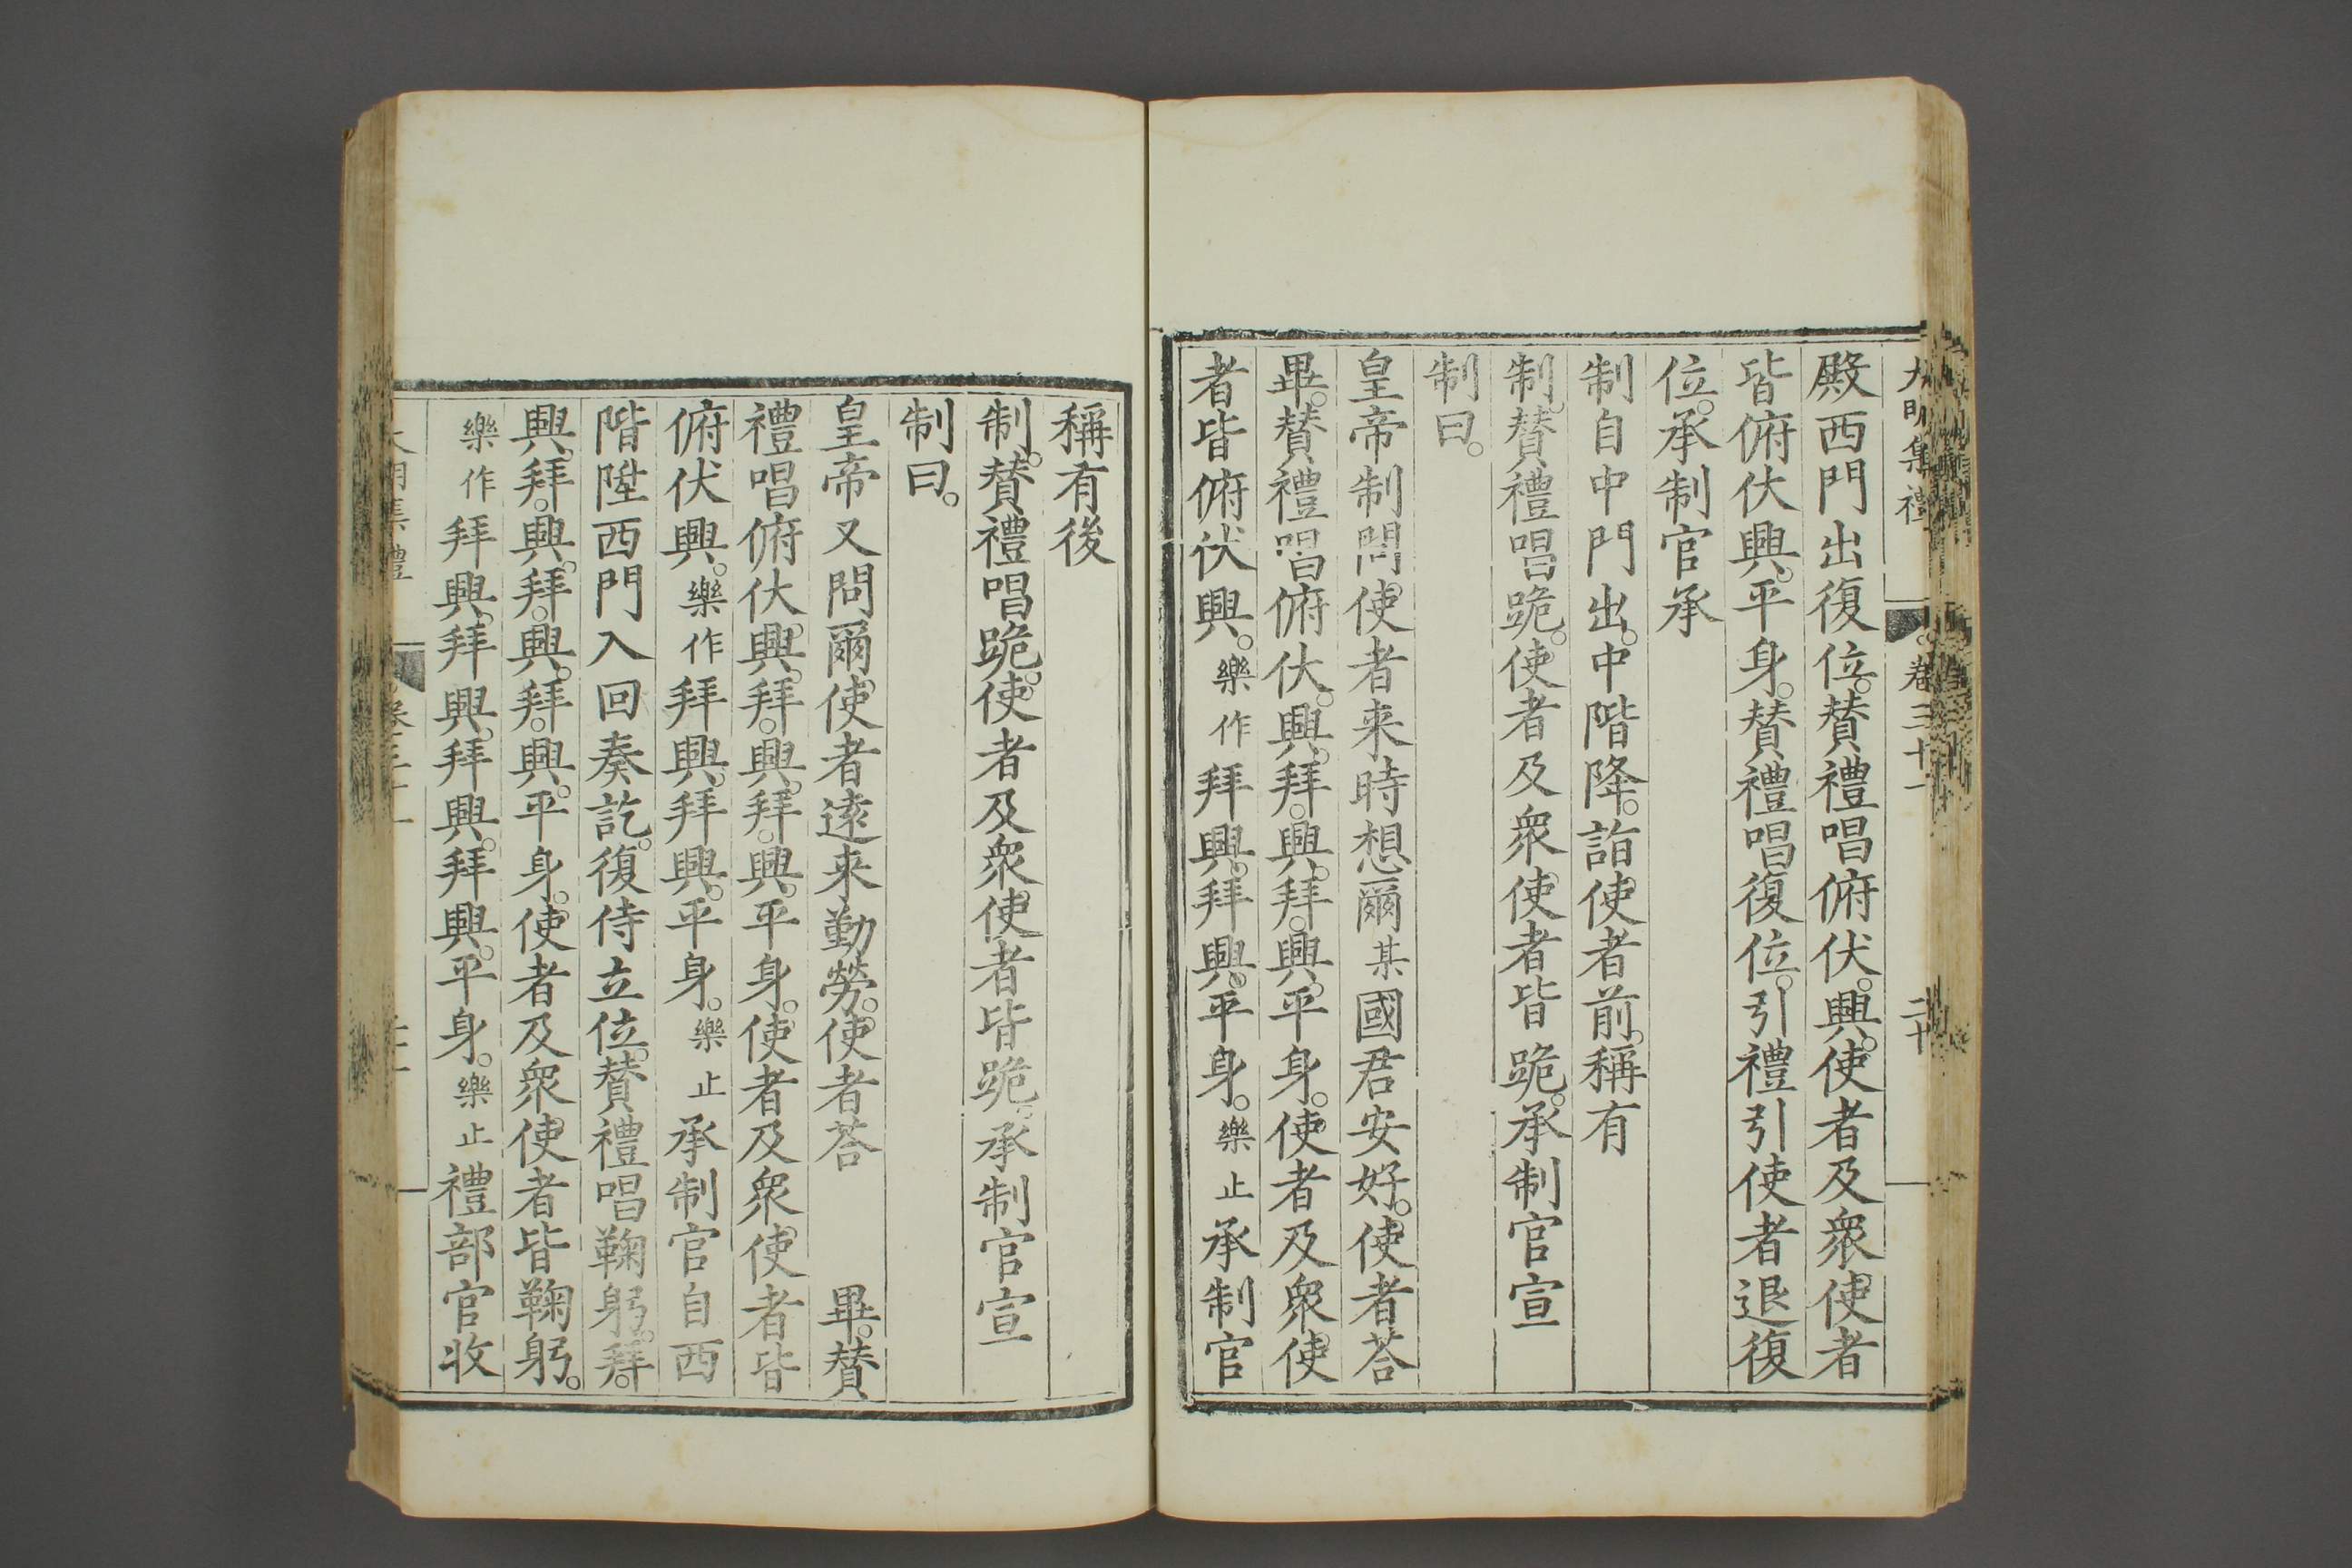 大明集禮 卷三十一 二十
殿西門出復位。贊禮唱俯伏。興。使者及衆使者
皆俯伏興。平身。贊禮唱復位。引禮引使者退復
位。承制官承
制自中門出。中階降。詣使者前。稱有
制。贊禮唱跪。使者及衆使者皆跪。承制官宣
制曰。
皇帝制問。使者来時想爾某國君安好。使者荅
畢。贊禮唱俯伏。興。拜。興。拜。興。平身。使者及衆使
者皆俯伏興。樂作拜興。拜興。平身。樂止承制官
稱有後
制。贊禮唱跪。使者及衆使者皆跪。承制官宣
制曰。
皇帝又問爾。使者遠来勤勞。使者荅 畢。贊
禮唱俯伏。興。拜。興。拜。興。平身。使者及衆使者皆
俯伏興。樂作拜興。拜興。平身。樂止承制官自西
階陞西門入回奏訖。復侍立位。贊禮唱鞠躬。拜。
興。拜。興。拜。興。拜。興。平身。使者及衆使者皆鞠躬。
樂作拜興。拜興。拜興。拜興。平身。樂止禮部官收